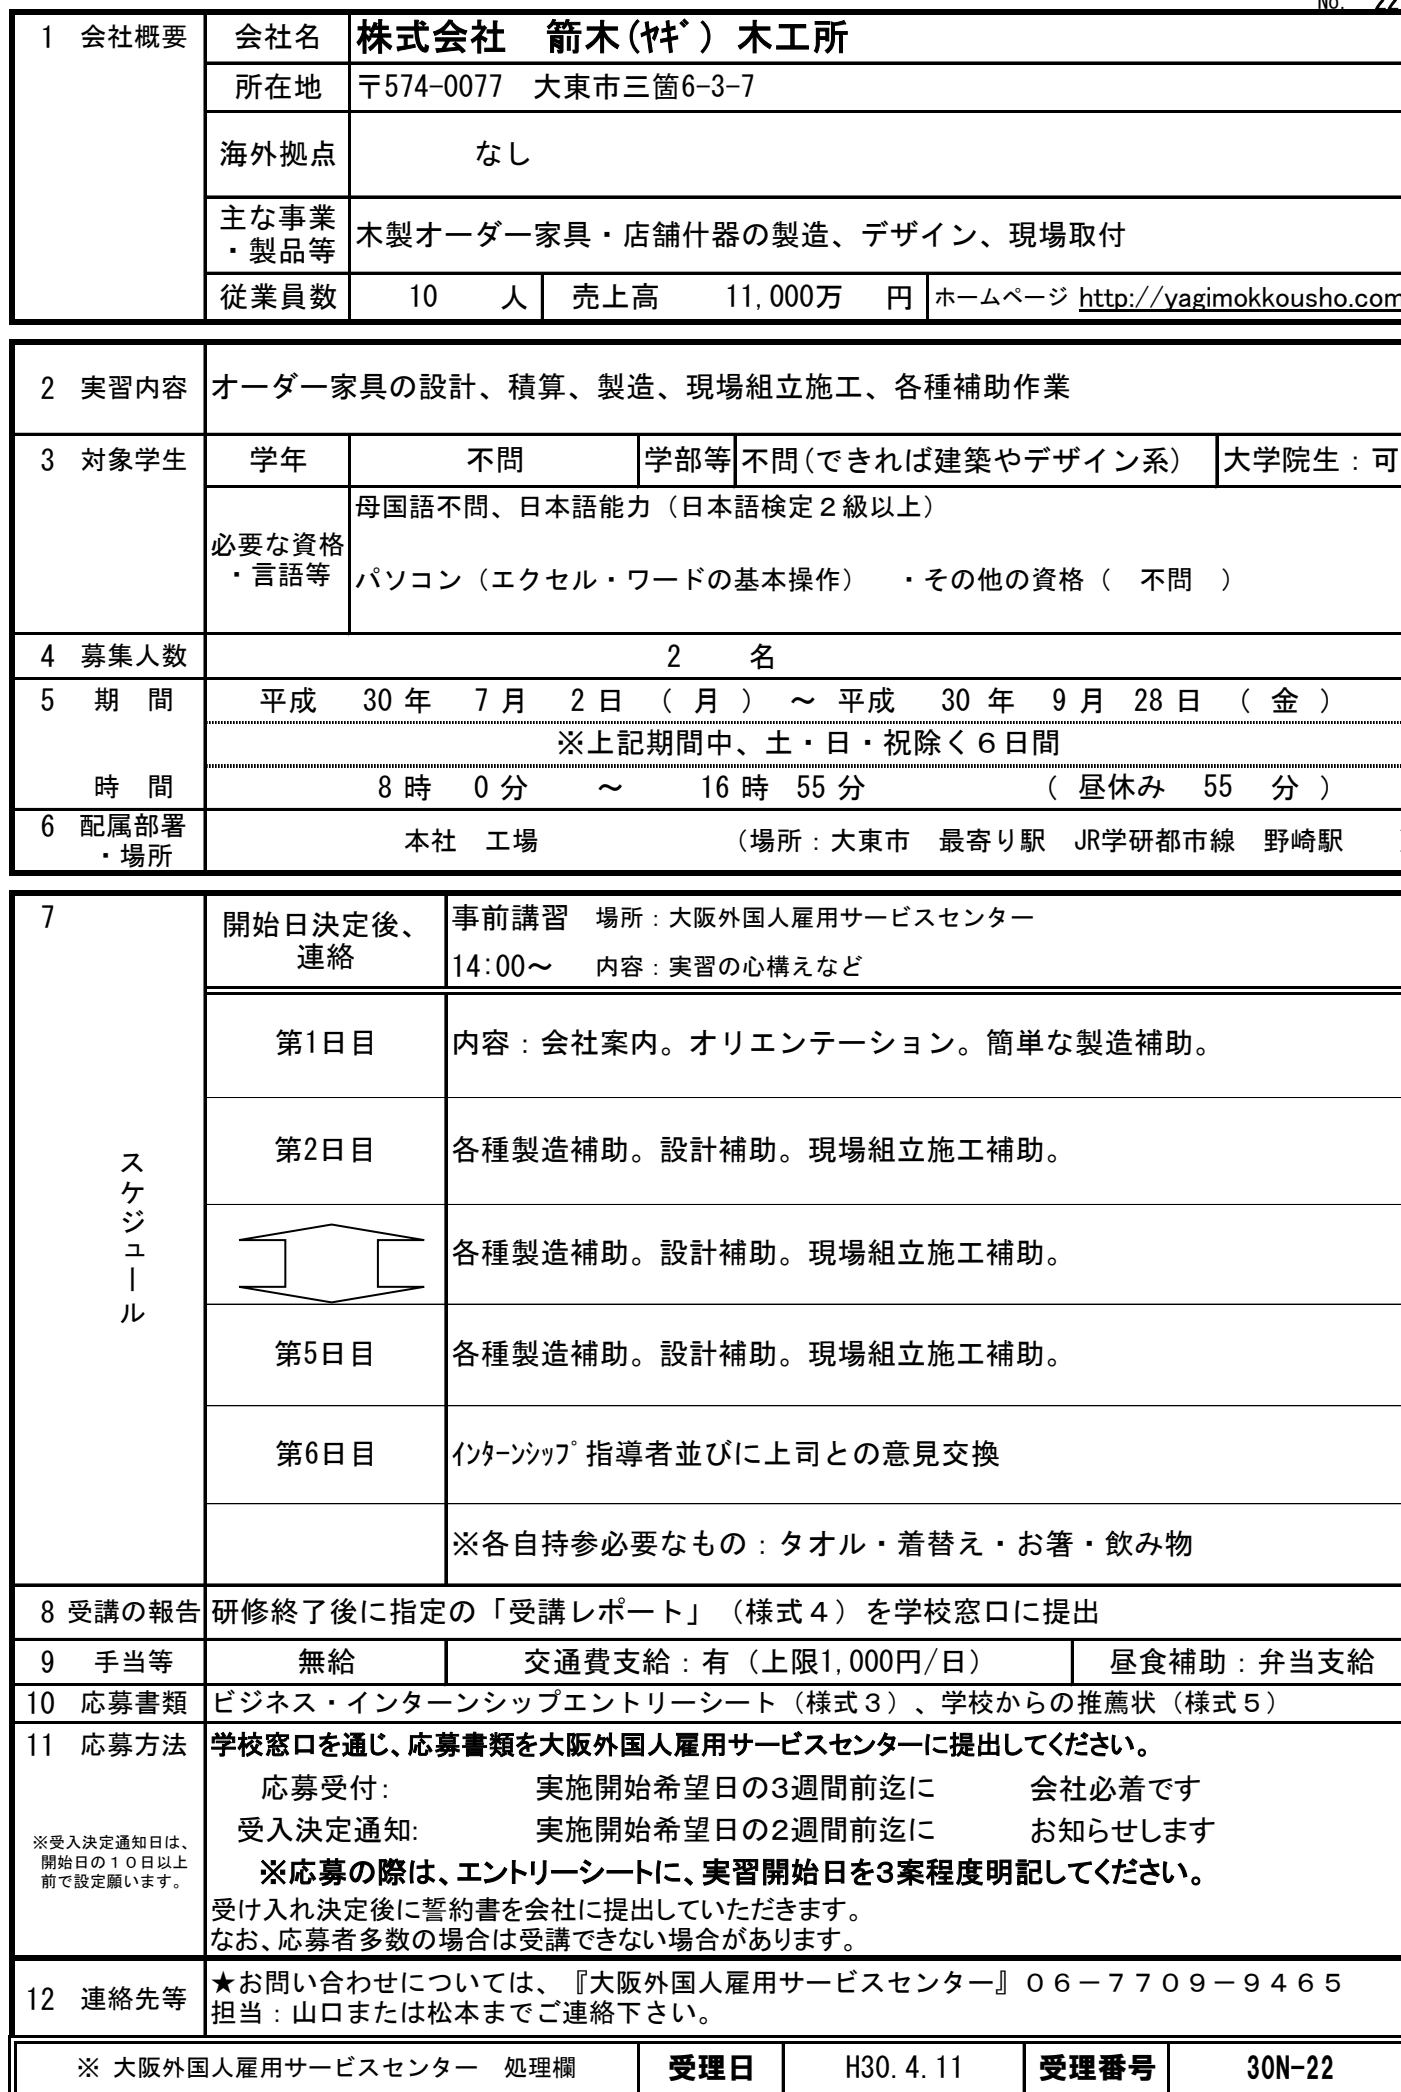 No. 22
1 会社概要 会社名 株式会社 箭木(ﾔｷﾞ) 木工所
所在地 〒574-0077 大東市三箇6-3-7
海外拠点 なし
主な事業・製品等 木製オーダー家具・店舗什器の製造、デザイン、現場取付
従業員数 10 人 売上高 11,000万 円 ホームページ http://yagimokkousho.com
2 実習内容 オーダー家具の設計、積算、製造、現場組立施工、各種補助作業
3 対象学生 学年 不問 学部等 不問(できれば建築やデザイン系) 大学院生：可
必要な資格・言語等 母国語不問、日本語能力（日本語検定２級以上）
パソコン（エクセル・ワードの基本操作） ・その他の資格（ 不問 ）
4 募集人数 2 名
5 期 間 平成 30 年 7 月 2 日 ( 月 ) ～ 平成 30 年 9 月 28 日 ( 金 )
※上記期間中、土・日・祝除く６日間
時 間 8 時 0 分 ～ 16 時 55 分 ( 昼休み 55 分 )
6 配属部署・場所 本社 工場 （場所：大東市 最寄り駅 JR学研都市線 野崎駅
7 スケジュール
開始日決定後、連絡 事前講習 場所：大阪外国人雇用サービスセンター
14:00～ 内容：実習の心構えなど
第1日目 内容：会社案内。オリエンテーション。簡単な製造補助。
第2日目 各種製造補助。設計補助。現場組立施工補助。
各種製造補助。設計補助。現場組立施工補助。
第5日目 各種製造補助。設計補助。現場組立施工補助。
第6日目 ｲﾝﾀｰﾝｼｯﾌﾟ指導者並びに上司との意見交換
※各自持参必要なもの：タオル・着替え・お箸・飲み物
8 受講の報告 研修終了後に指定の「受講レポート」（様式４）を学校窓口に提出
9 手当等 無給 交通費支給：有（上限1,000円/日） 昼食補助：弁当支給
10 応募書類 ビジネス・インターンシップエントリーシート（様式３）、学校からの推薦状（様式５）
11 応募方法 学校窓口を通じ、応募書類を大阪外国人雇用サービスセンターに提出してください。
応募受付: 実施開始希望日の3週間前迄に 会社必着です
受入決定通知: 実施開始希望日の2週間前迄に お知らせします
※受入決定通知日は、
開始日の１０日以上
前で設定願います。
※応募の際は、エントリーシートに、実習開始日を3案程度明記してください。
受け入れ決定後に誓約書を会社に提出していただきます。
なお、応募者多数の場合は受講できない場合があります。
12 連絡先等 ★お問い合わせについては、『大阪外国人雇用サービスセンター』０６－７７０９－９４６５
担当：山口または松本までご連絡下さい。
※ 大阪外国人雇用サービスセンター 処理欄 受理日 H30.4.11 受理番号 30N-22